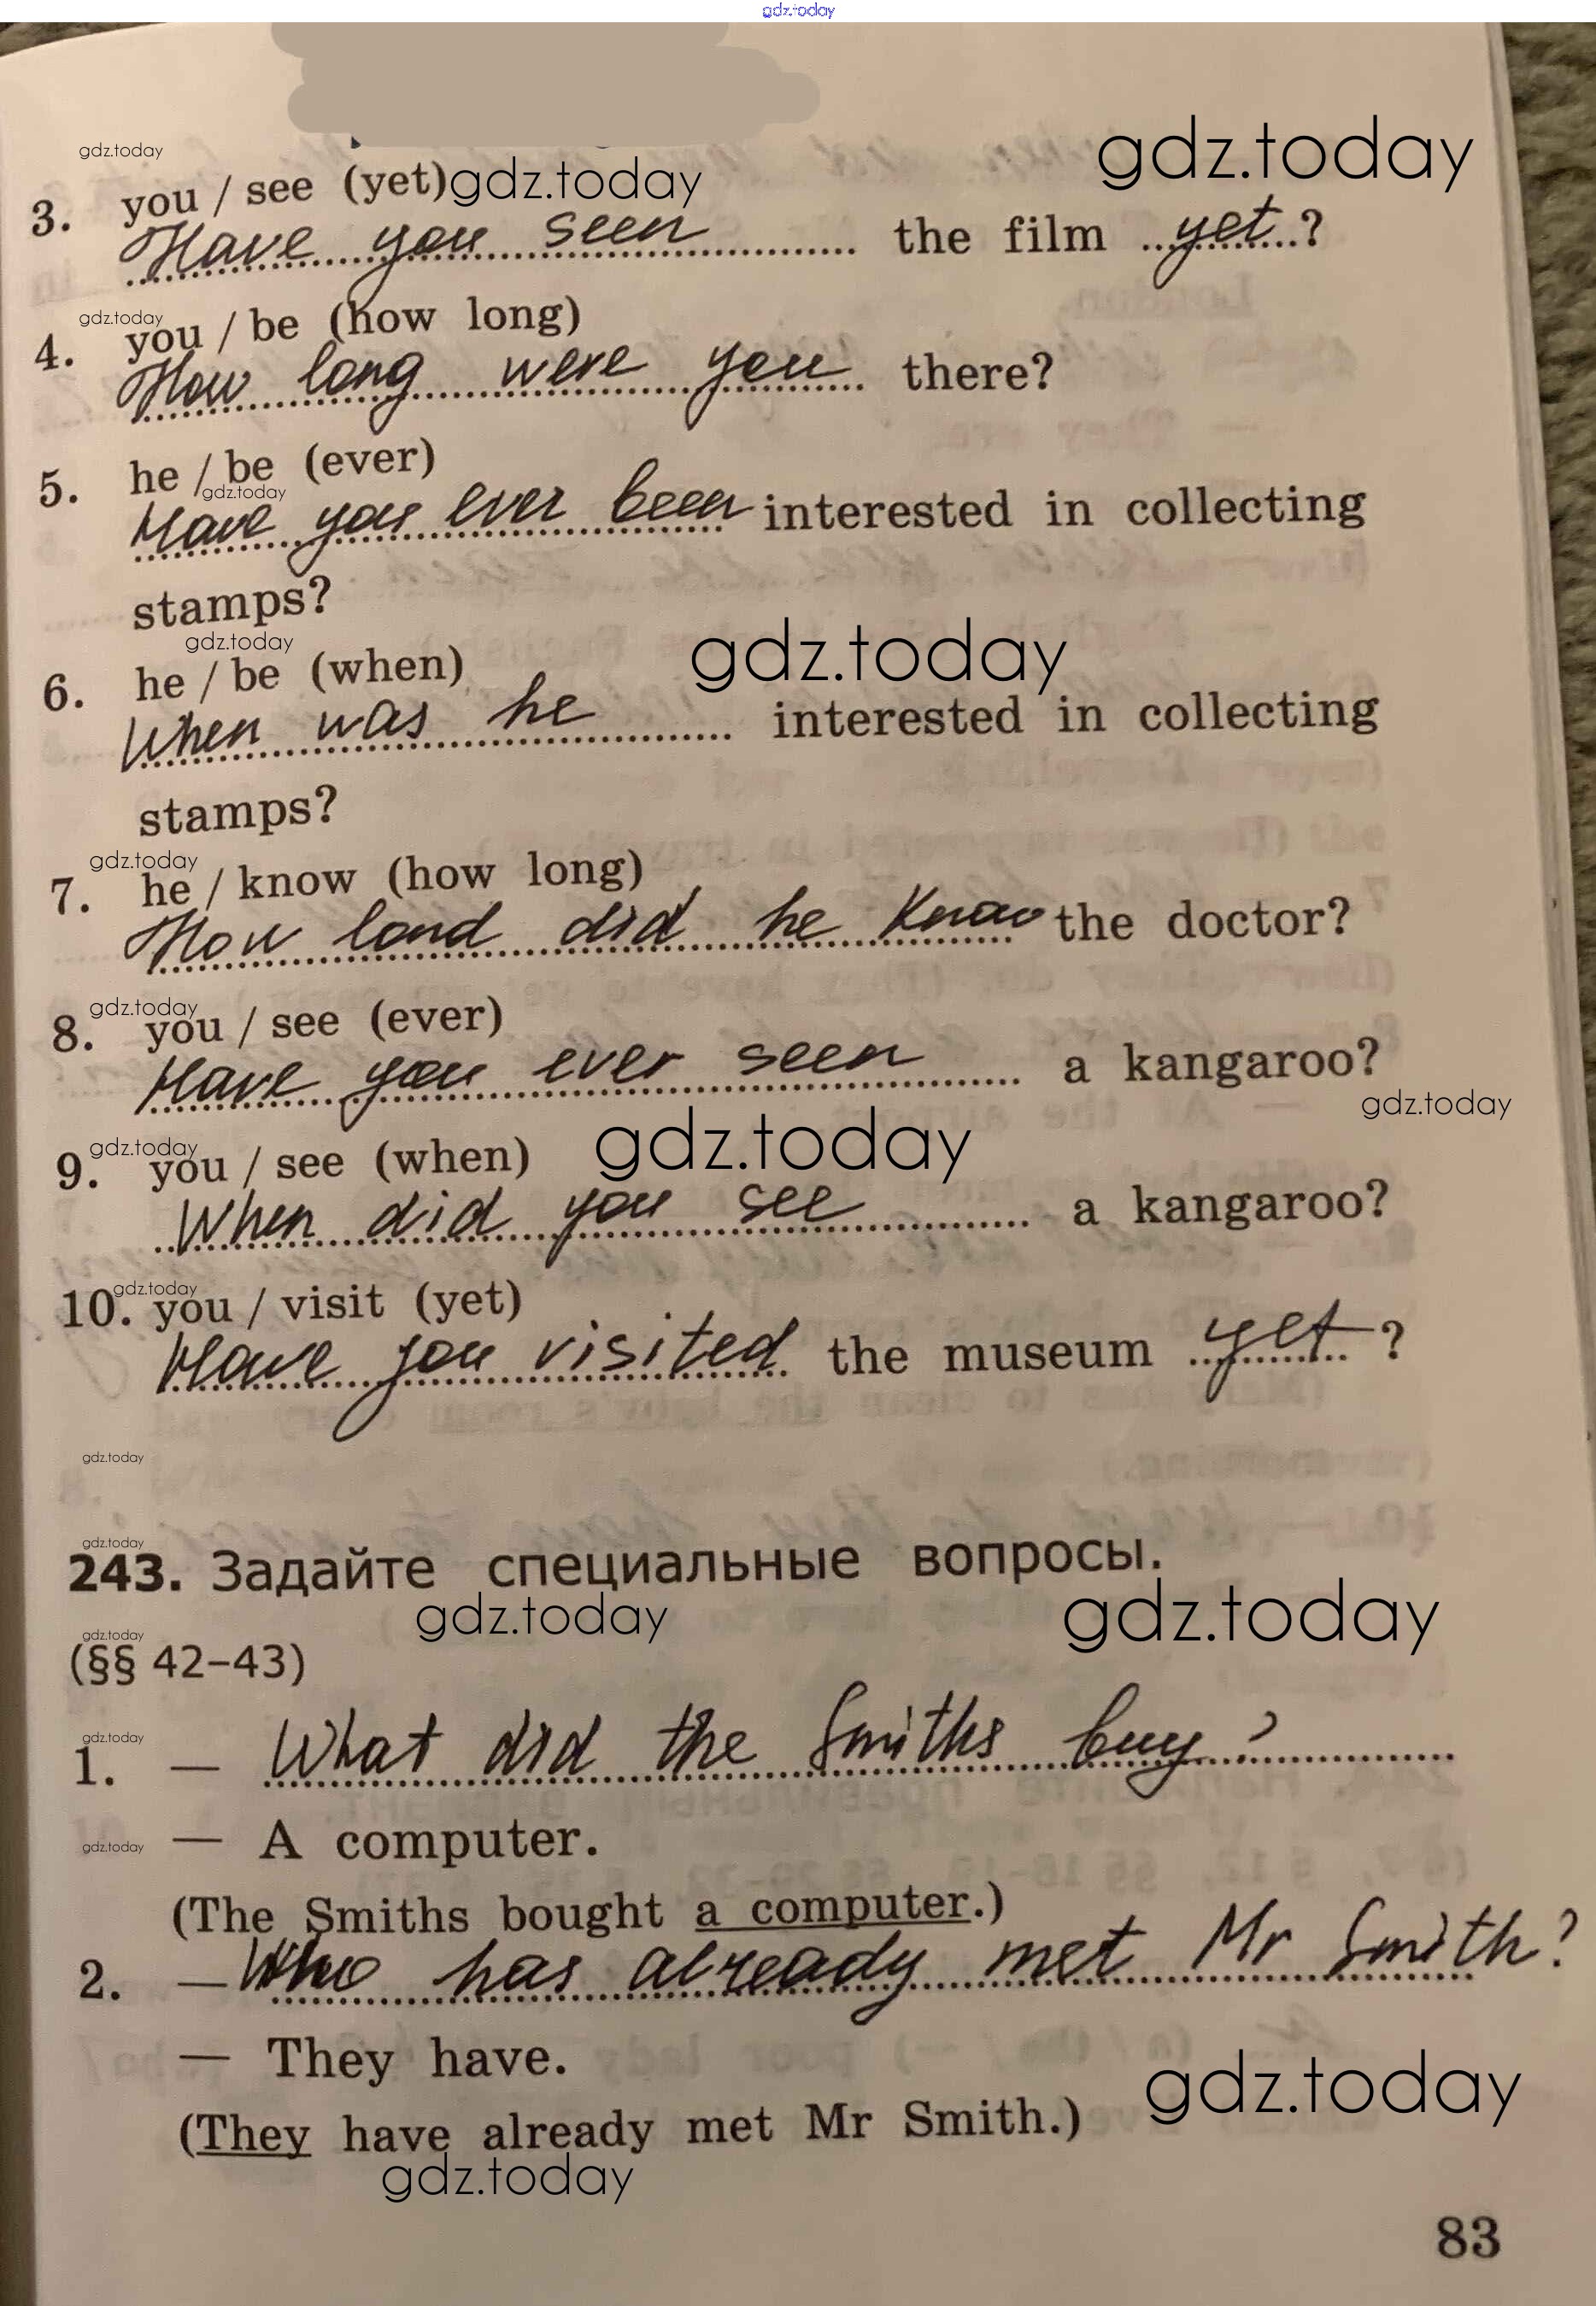 gdz.today
gdz.today
gdz.today
3. you / see (yet) gdz.today
Have you seen the film yet?
gdz.today
4. you / be (how long)
How long were you there?
5. he / be (ever)
gdz.today
Have you ever been interested in collecting
stamps?
gdz.today
gdz.today
6. he / be (when)
When was he interested in collecting
stamps?
gdz.today
7. he / know (how long)
How lond did he know the doctor?
gdz.today
8. you / see (ever)
Have you ever seen a kangaroo?
gdz.today
gdz.today
gdz.today
9. you / see (when)
When did you see a kangaroo?
gdz.today
10. you / visit (yet)
Have you visited the museum yet?
gdz.today
gdz.today
243. Задайте специальные вопросы.
gdz.today
gdz.today
gdz.today
(§§ 42–43)
gdz.today
1. — What did the Smiths buy?
gdz.today
— A computer.
(The Smiths bought a computer.)
2. — Who has already met Mr Smith?
— They have.
gdz.today
(They have already met Mr Smith.)
gdz.today
83